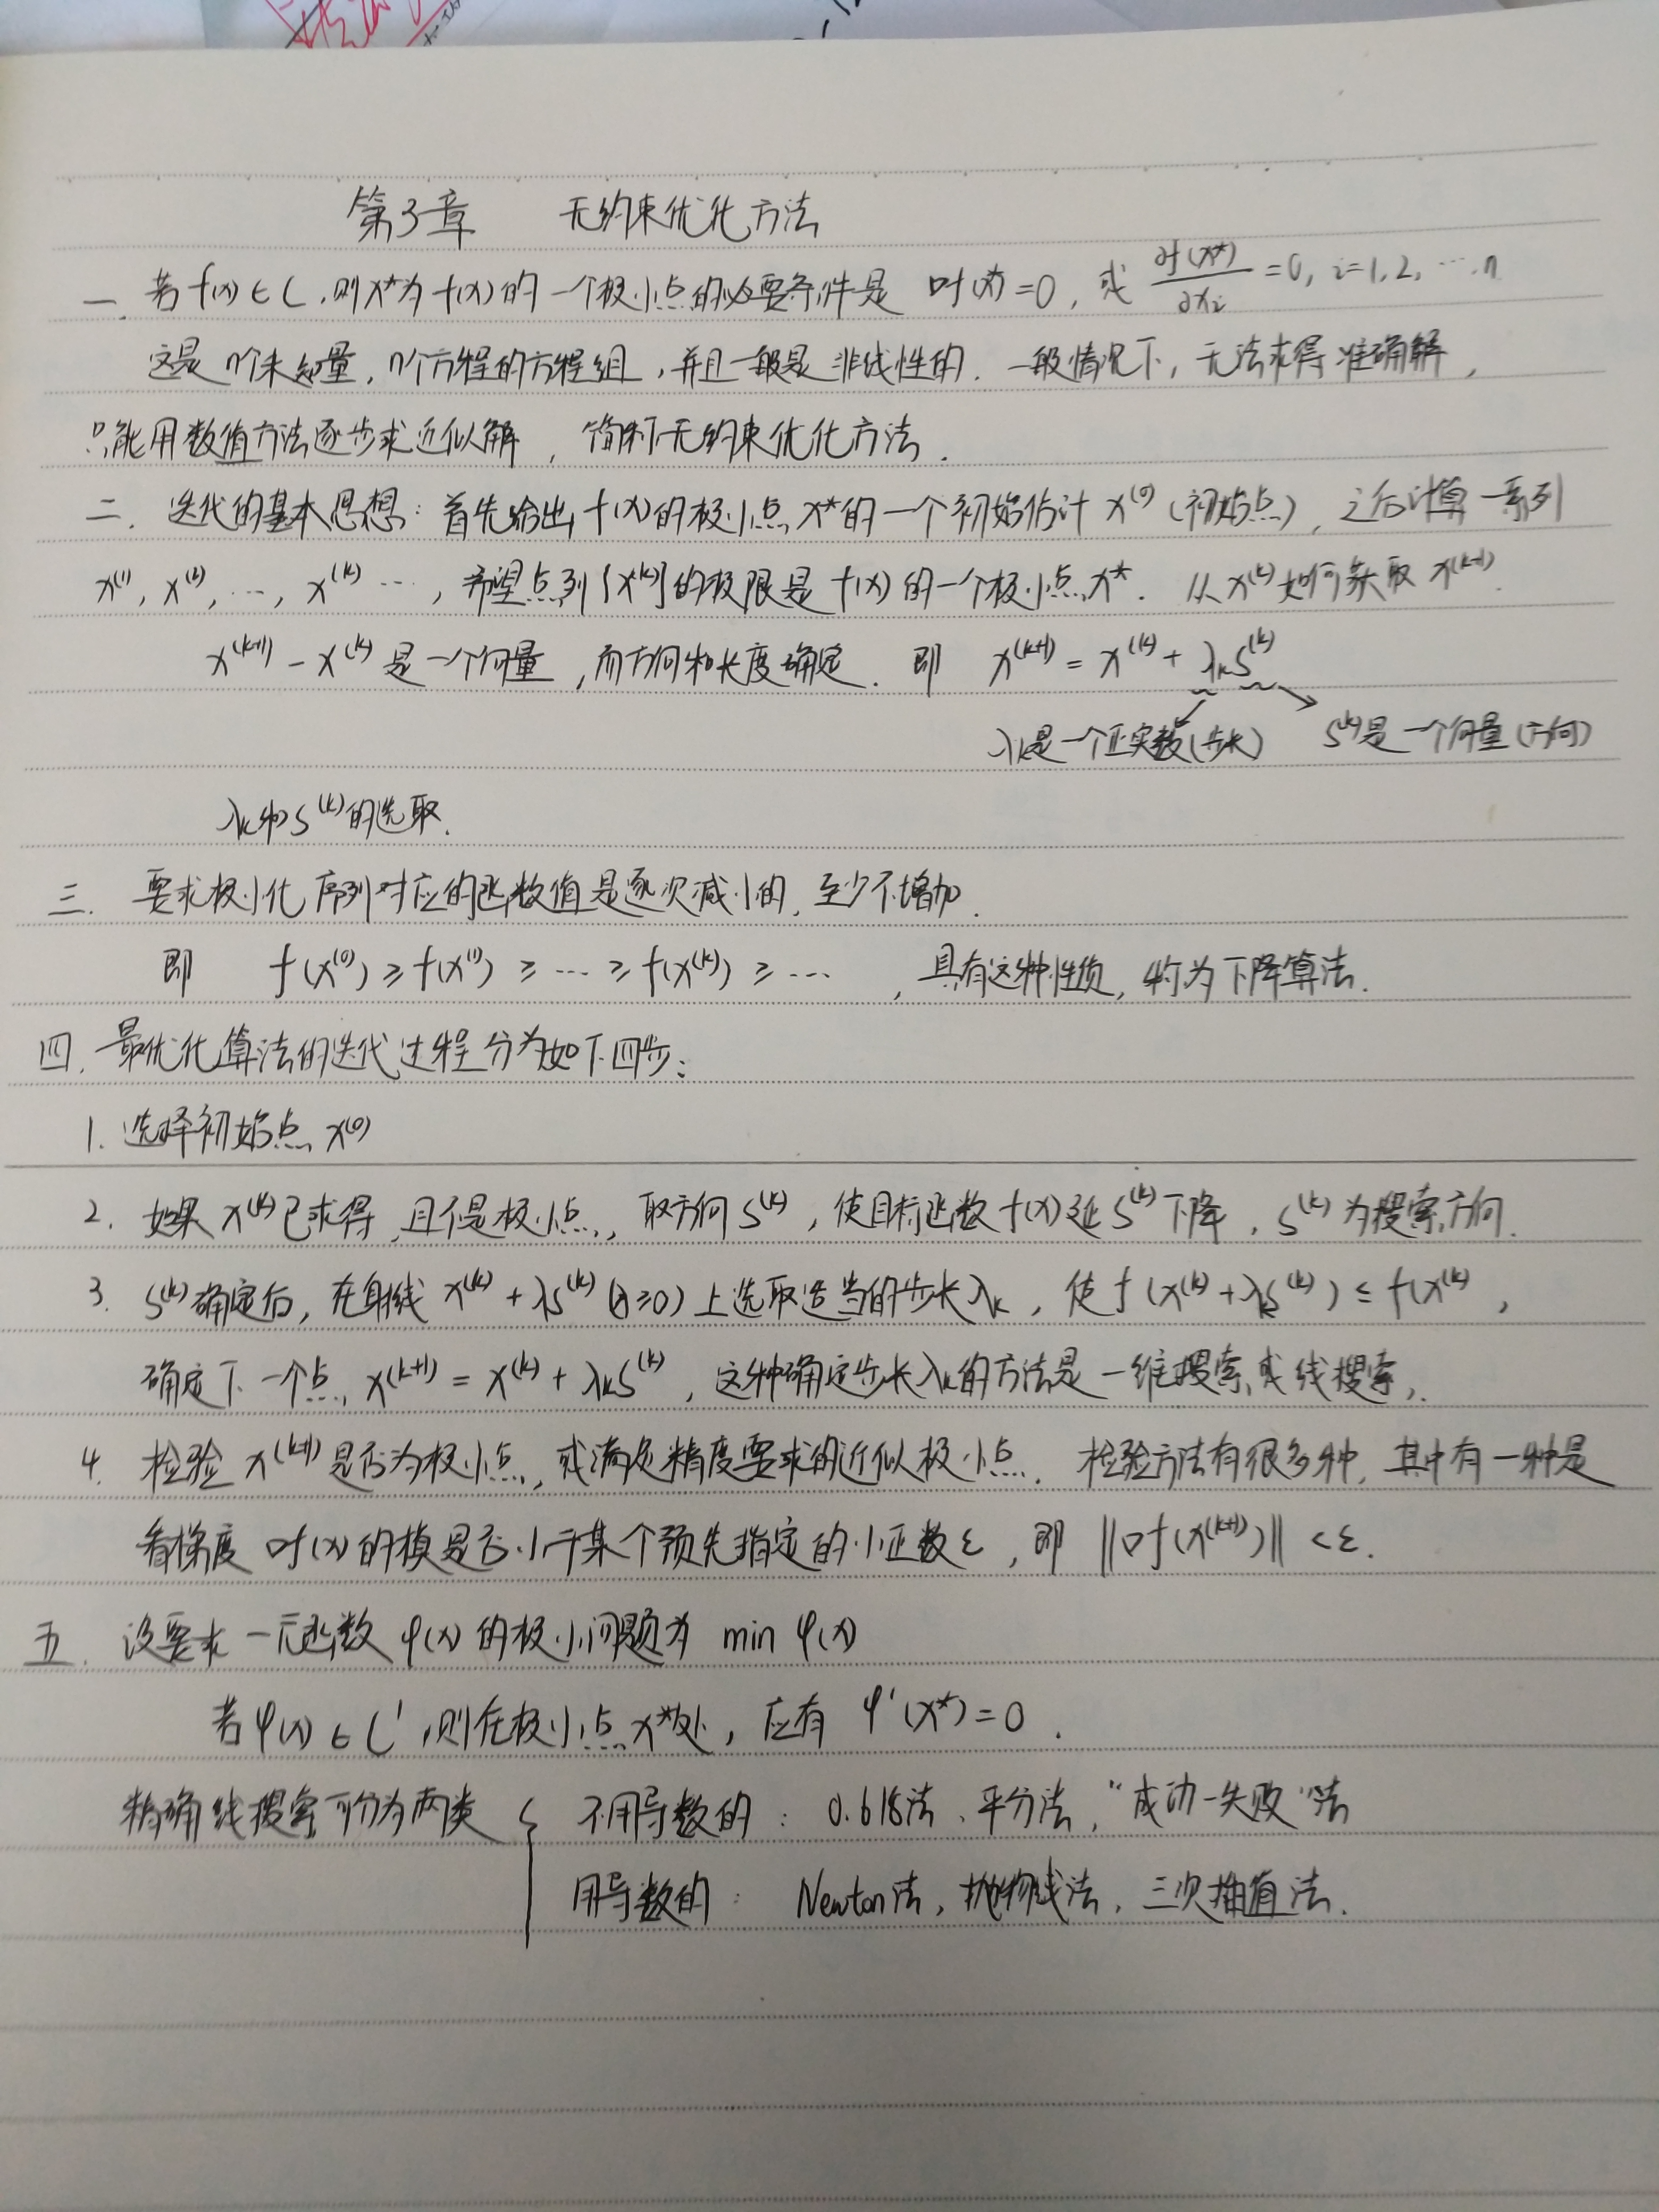 第3章 无约束优化方法
一. 若f(x)∈C,则x*为f(x)的一个极小点的必要条件是 ∇f(x*)=0, 或 ∂f(x*)/∂xi =0, i=1,2,…,n
这是n个未知量,n个方程的方程组,并且一般是非线性的. 一般情况下,无法求得准确解,
只能用数值方法逐步求近似解, 简称无约束优化方法.
二. 迭代的基本思想: 首先给出f(x)的极小点x*的一个初始估计x^(0)(初始点), 之后计算一系列
x^(1), x^(2), …, x^(k) …, 希望点列{x^(k)}的极限是f(x)的一个极小点x*. 从x^(k)如何获取x^(k+1).
x^(k+1) - x^(k)是一个向量,而方向和长度确定. 即 x^(k+1) = x^(k) + λkS^(k)
λk是一个正实数(步长) S^(k)是一个向量(方向)
λk和S^(k)的选取.
三. 要求极小化序列对应的函数值是逐次减小的, 至少不增加.
即 f(x^(0)) ≥ f(x^(1)) ≥ … ≥ f(x^(k)) ≥ … ,具有这种性质,称为下降算法.
四. 最优化算法的迭代过程分为如下四步:
1. 选择初始点x^(0)
2. 如果x^(k)已求得,且不是极小点, 取方向S^(k),使目标函数f(x)延S^(k)下降, S^(k)为搜索方向.
3. S^(k)确定后, 在射线x^(k)+λS^(k)(λ≥0)上选取适当的步长λk, 使f(x^(k)+λkS^(k)) ≤ f(x^(k),
确定下一个点x^(k+1) = x^(k) + λkS^(k), 这种确定步长λk的方法是一维搜索或线搜索,.
4. 检验x^(k+1)是否为极小点,或满足精度要求的近似极小点. 检验方法有很多种, 其中有一种是
看梯度∇f(x)的模是否小于某个预先指定的小正数ε, 即 ||∇f(x^(k+1))|| <ε.
五. 设要求一元函数φ(x)的极小问题为 min φ(x)
若φ(x)∈C',则在极小点x*处, 应有 φ'(x*)=0.
精确线搜索可分为两类 { 不用导数的: 0.618法、平分法,“成功-失败”法
用导数的: Newton法,抛物线法,三次插值法.